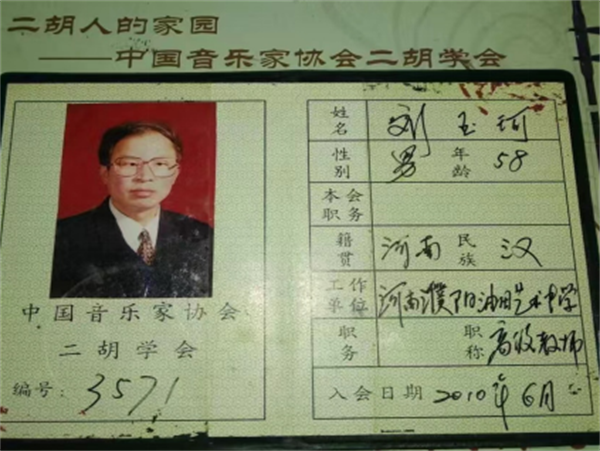 二胡人的家园
——中国音乐家协会二胡学会
中国音乐家协会
二胡学会
编号：3571
姓名 刘玉珂
性别 男 年龄 58
本会职务
籍贯 河南 民族 汉
工作单位 河南濮阳油田艺术中学
职务 职称 高级教师
入会日期 2010年6月